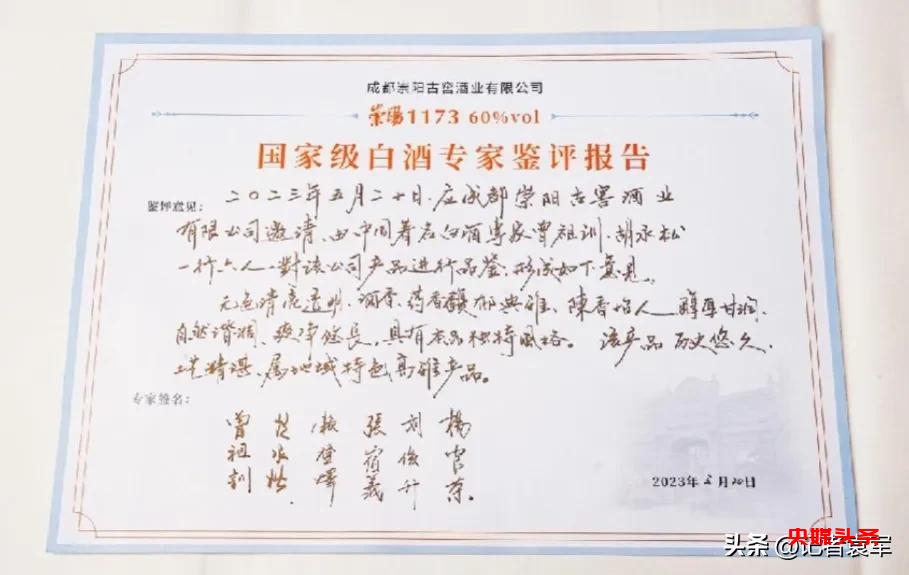 成都崇阳古窖酒业有限公司
崇阳1173 60%vol
国家级白酒专家鉴评报告
鉴评意见:二〇二三年五月二十日,应成都崇阳古窖酒业
有限公司邀请,由中国著名白酒专家曾祖训、胡永松
一行六人,对该公司产品进行品鉴,形成如下意见。
无色清亮透明、酒香、药香馥郁典雅、陈香怡人、醇厚甘润、
自然谐调、爽净悠长,具有本品独特风格。该产品历史悠久、
工艺精湛、属地域特色高雅产品。
专家签名:
曾祖训
张宿义
刘俊升
杨官荣
2023年5月20日
央媒头条
头条 @记者袁军